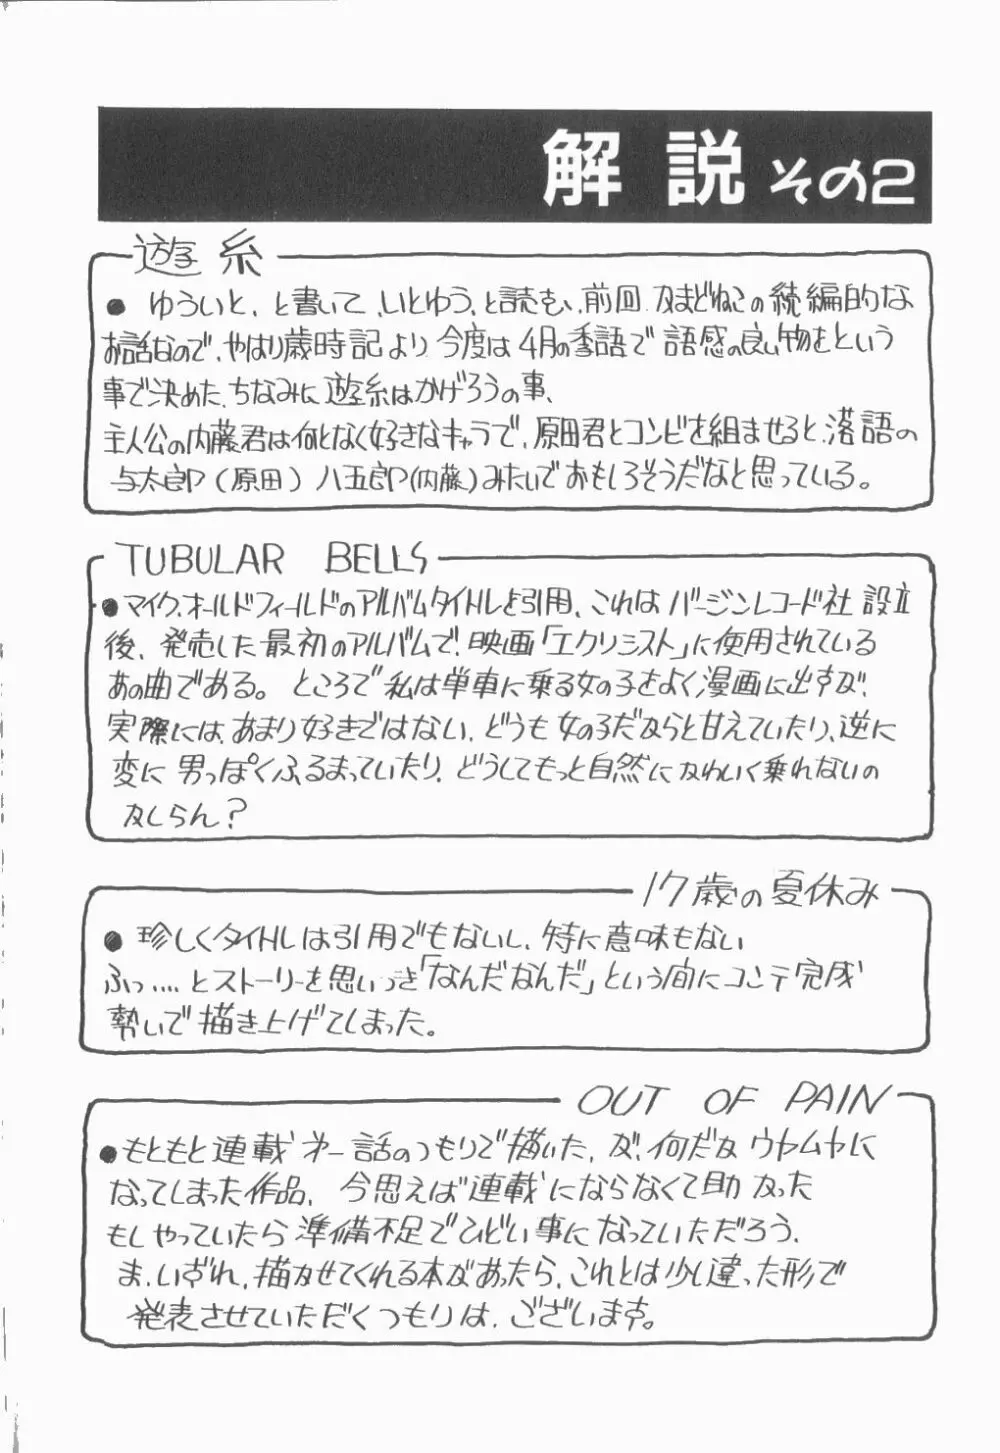 解説 その2
遊糸
● ゆういと、と書いて、いとゆう、と読む、前回 かまどねこの続編的な
お話なので、やはり歳時記より 今度は4月の季語で 語感の良い物をという
事で決めた、ちなみに 遊糸はかげろうの事、
主人公の内藤君は何となく好きなキャラで、原田君とコンビを組ませると、落語の
与太郎(原田) 八五郎(内藤)みたいでおもしろそうだなと思っている。
TUBULAR BELLS
●マイク・オールドフィールドのアルバムタイトルを引用、これは バージンレコード社 設立
後、発売した最初のアルバムで、映画「エクソシスト」に使用されている
あの曲である。 ところで 私は単車に乗る女の子をよく漫画に出すが、
実際には、あまり好きではない、どうも 女の子だからと甘えていたり、逆に
変に 男っぽくふるまっていたり、どうしてもっと自然に かわいく乗れないの
かしらん?
17歳の夏休み
● 珍しくタイトルは引用でもないし、特に意味もない
ふっ‥‥とストーリーを思いつき「なんだなんだ」という間にコンテ完成
勢いで描き上げてしまった。
OUT OF PAIN
●もともと連載 オ一話のつもりで描いた、が、何だか ウヤムヤに
なってしまった作品、 今思えば連載にならなくて助かった
もしやっていたら 準備不足でひどい事になっていただろう、
ま、いずれ、描かせてくれる本があったら、これとは少し違った形で
発表させていただくつもりは、ございます。